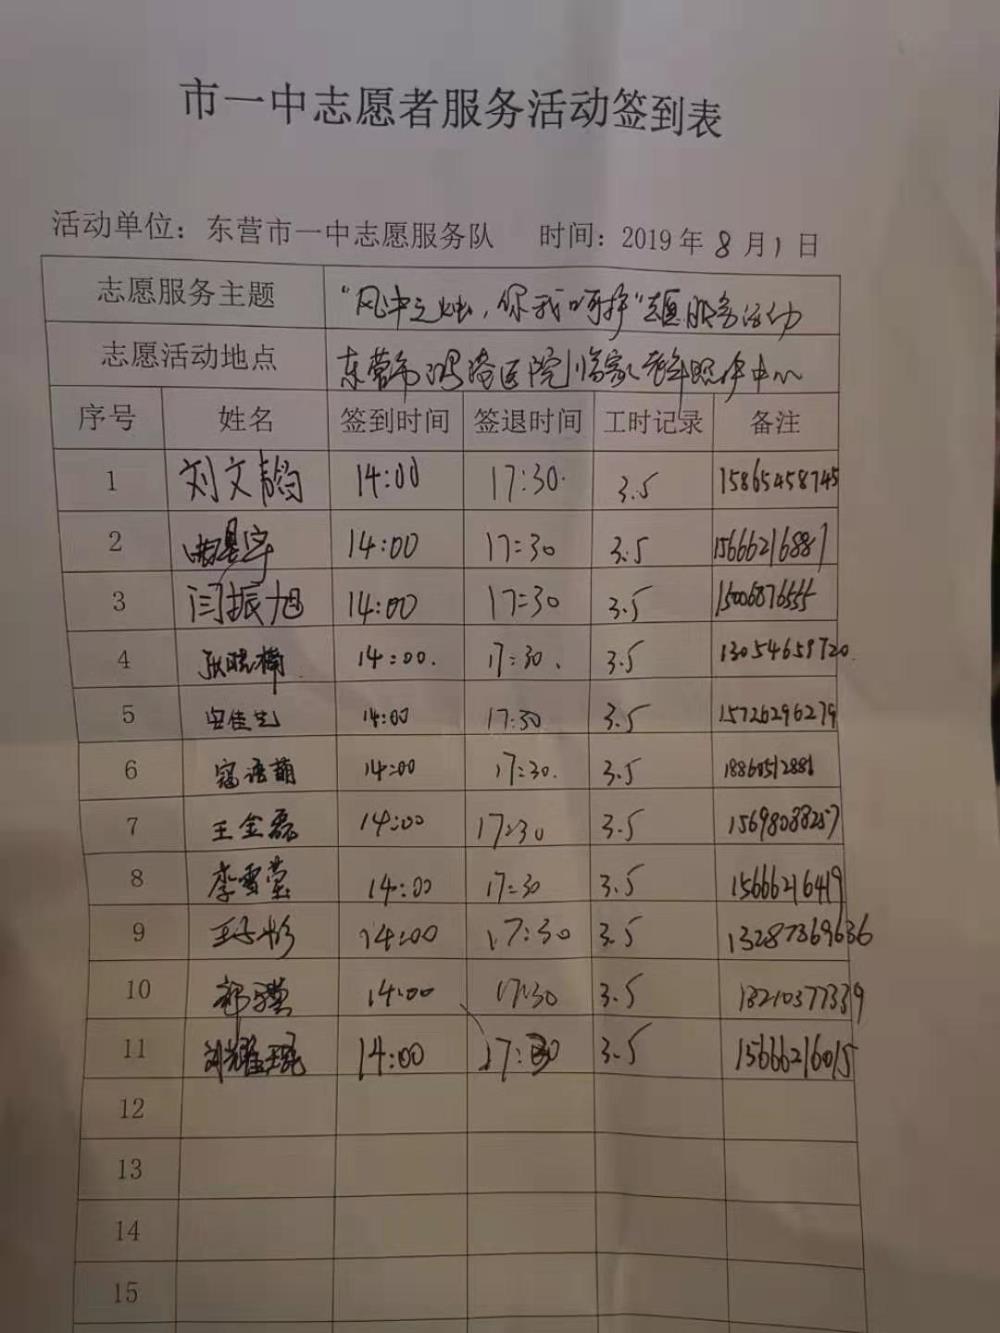 市一中志愿者服务活动签到表
活动单位：东营市一中志愿服务队 时间：2019年8月1日
志愿服务主题 "风中之烛，你我呵护"志愿服务活动
志愿活动地点 东营市鸿港医院临家老年照护中心
序号 姓名 签到时间 签退时间 工时记录 备注
1 刘文韵 14:00 17:30. 3.5 15865458745
2 14:00 17:30 3.5 15666216881
3 闫振旭 14:00 17:30 3.5 15006876555
4 张晓楠 14:00. 17:30. 3.5 13054659720
5 14:00 17:30 3.5 15726296279
6 寇语萌 14:00 17:30. 3.5 18860512881
7 王金磊 14:00 17:30 3.5 15698088257
8 李雪莹 14:00 17:30 3.5 15666216419
9 王子杉 14:00 17:30 3.5 13287369636
10 14:00 17:30 3.5 18210377339
11 刘耀琨 14:00 17:30 3.5 15666216015
12
13
14
15